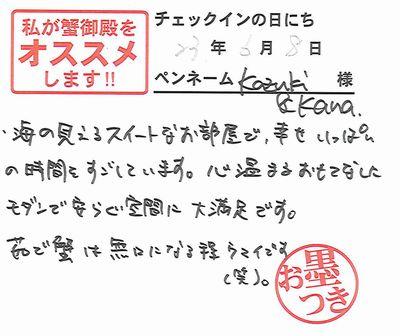 私が蟹御殿を
オススメ
します!!
チェックインの日にち
23年6月8日
ペンネーム Kazuki & Kana. 様
・海の見えるスイートなお部屋で、幸せいっぱい
の時間をすごしています。心温まるおもてなしと
モダンで安らぐ空間に大満足です。
茹で蟹は無口になる程ウマイです
(笑)。
お墨つき